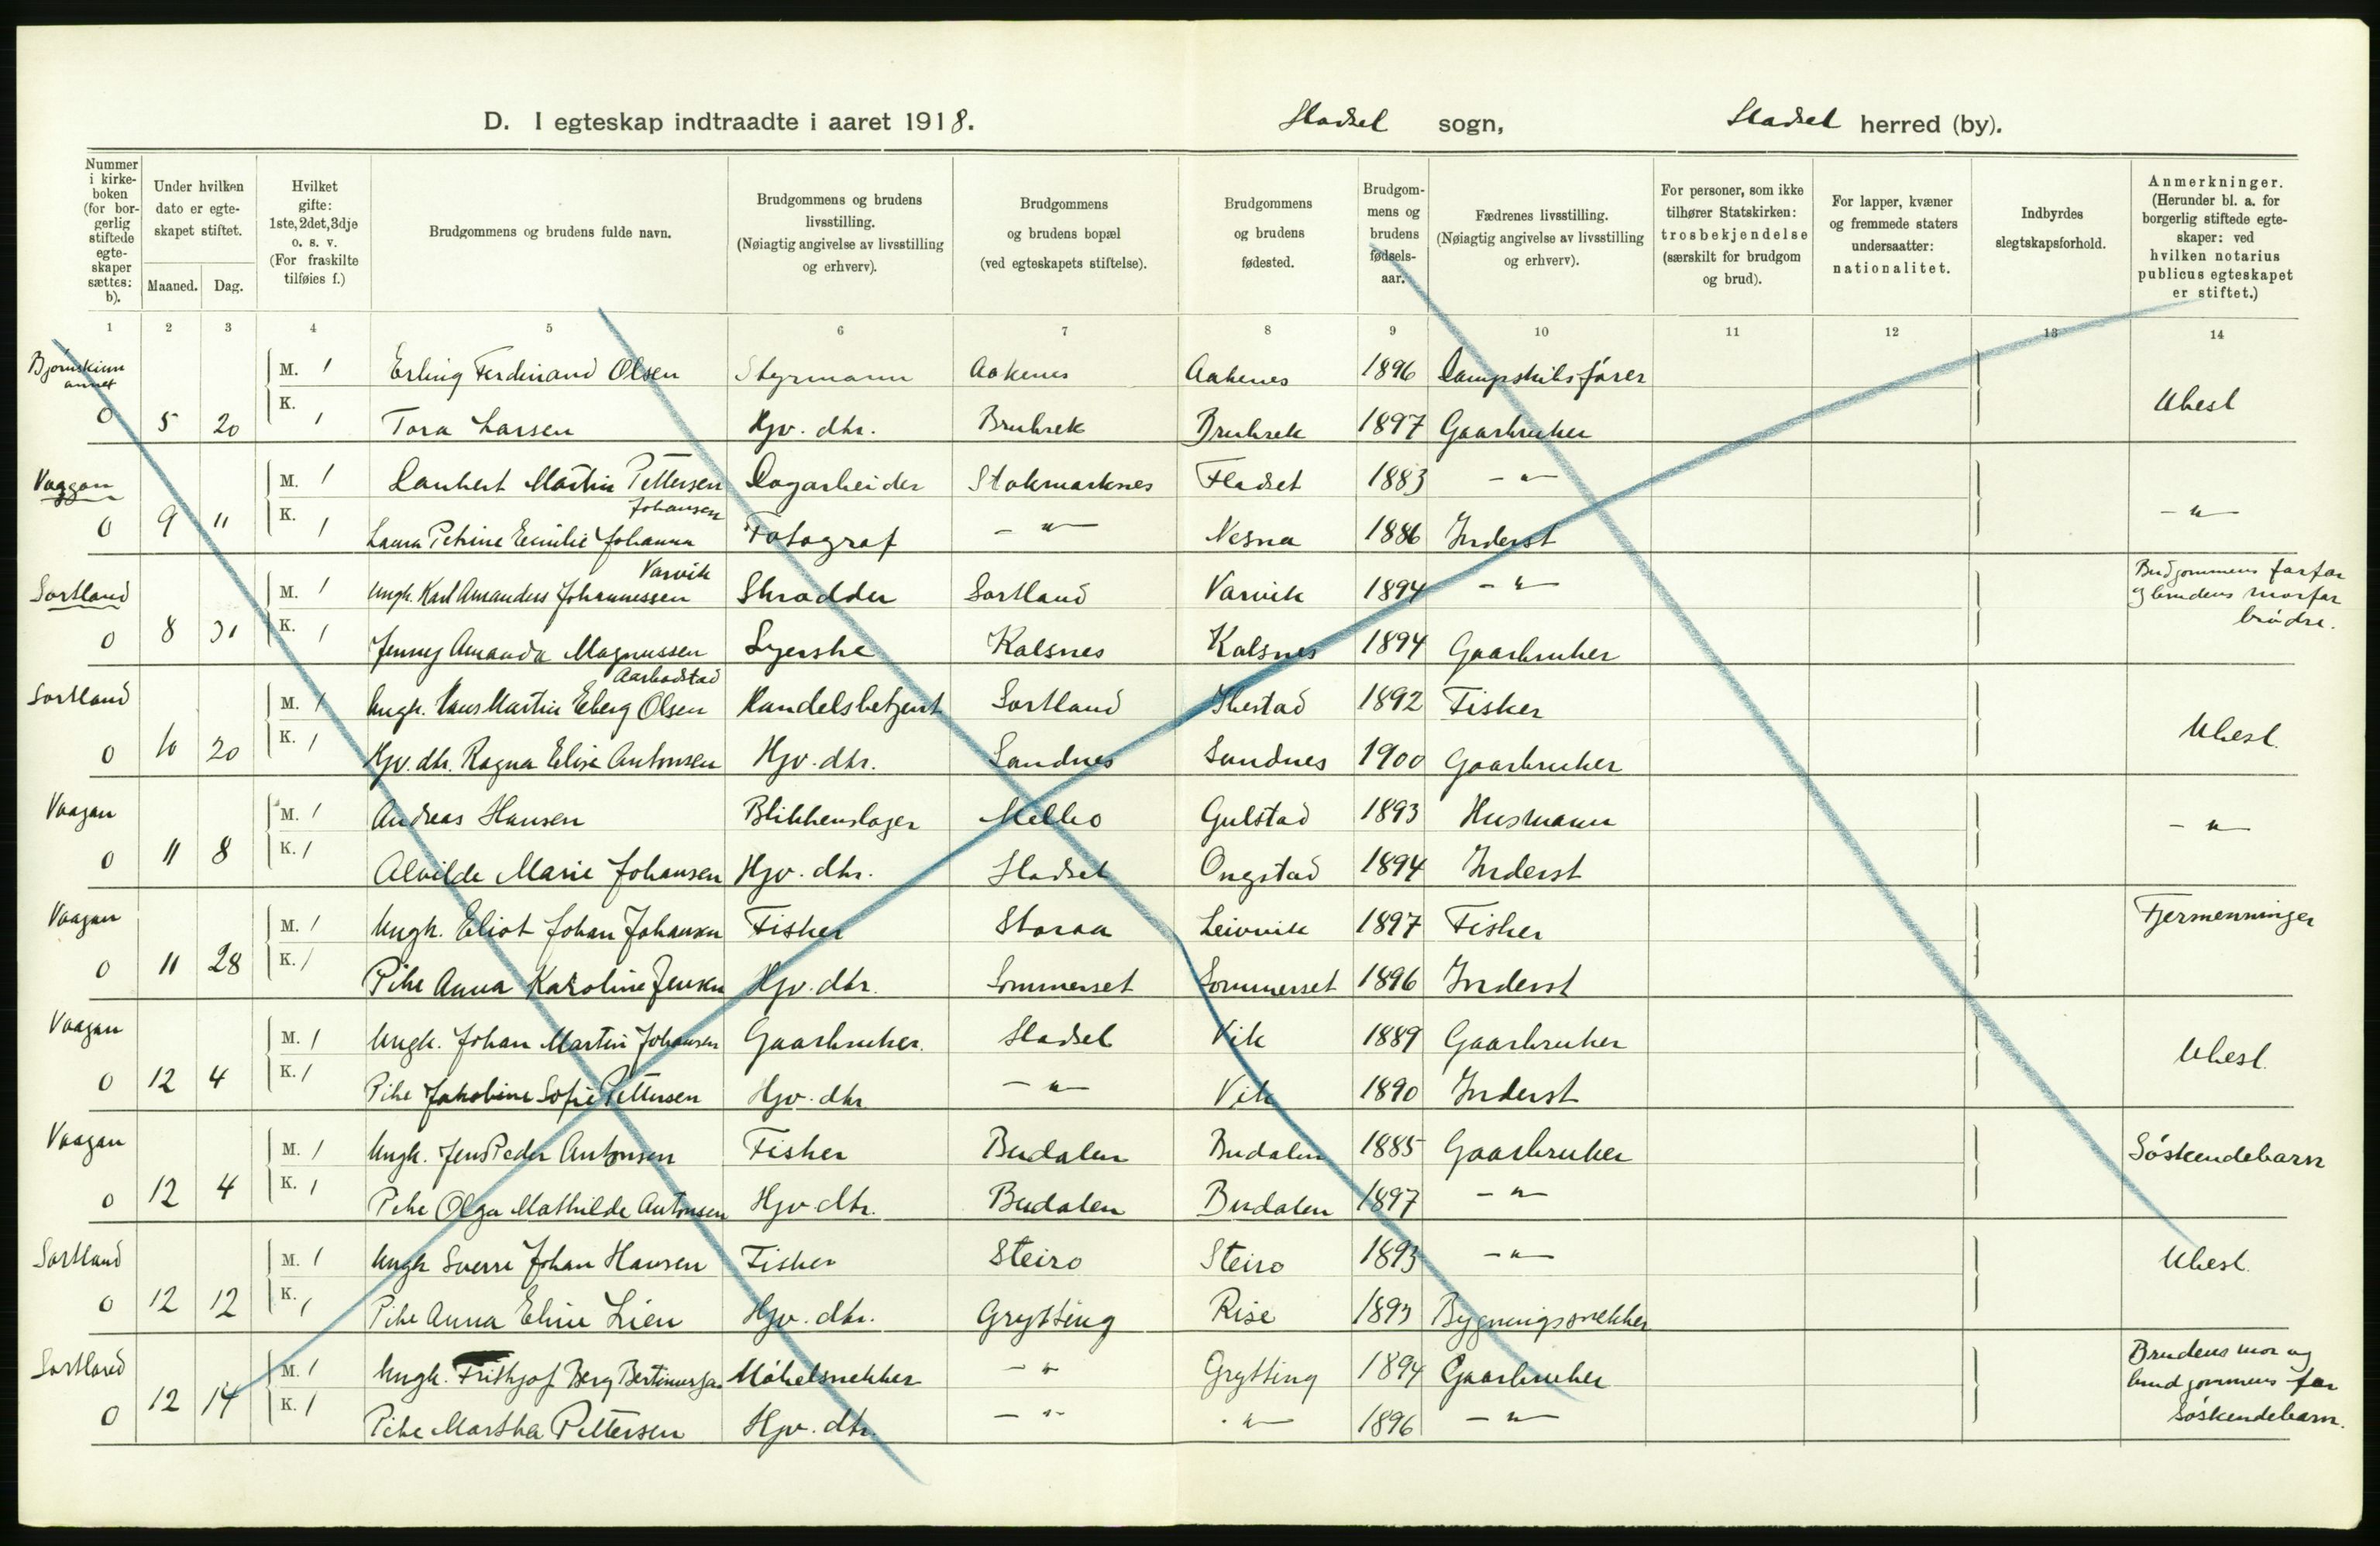 D. I egteskap indtraadte i aaret 1918. Hadsel sogn, Hadsel herred (by).
Nummer i kirke-boken (for bor-gerlig stiftede egte-skaper sættes: b).
Under hvilken dato er egte-skapet stiftet.
Maaned. Dag.
Hvilket gifte: 1ste, 2det, 3dje o. s. v. (For fraskilte tilføies f.)
Brudgommens og brudens fulde navn.
Brudgommens og brudens livsstilling. (Nøiagtig angivelse av livsstilling og erhverv).
Brudgommens og brudens bopæl (ved egteskapets stiftelse).
Brudgommens og brudens fødested.
Brudgom-mens og brudens fødsels-aar.
Fædrenes livsstilling. (Nøiagtig angivelse av livsstilling og erhverv).
For personer, som ikke tilhører Statskirken: trosbekjendelse (særskilt for brudgom og brud).
For lapper, kvæner og fremmede staters undersaatter: nationalitet.
Indbyrdes slegtskapsforhold.
Anmerkninger. (Herunder bl. a. for borgerlig stiftede egte-skaper: ved hvilken notarius publicus egteskapet er stiftet.)
1 2 3 4 5 6 7 8 9 10 11 12 13 14
Bjørnskinn annet
M. 1 Erling Ferdinand Olsen Styrmann Aakenes Aakenes 1896 Dampskibsfører
0 5 20 K. 1 Tora Larsen Hjv. dtr. Bruhsek Bruhsek 1897 Gaarbruker Ubesl
Vaagan M. 1 Lambert Martin Pettersen Dagarbeider Stokmarknes Hadsel 1883 - " -
Johansen
0 9 11 K. 1 Laura Petrine Emilie Johanna Fotograf - " - Nesna 1886 Inderst - " -
Varvik
Sortland M. 1 Ungk. Karl Amandus Johannessen Skrædder Sortland Varvik 1894 - " - Brudgommens farfar og brudens morfar brødre.
0 8 31 K. 1 Jenny Amanda Magnussen Syerske Kalsnes Kalsnes 1894 Gaarbruker
Aarbodstad
Sortland M. 1 Ungk. Hans Martin Eberg Olsen Handelsbetjent Sortland Ibestad 1892 Fisker
0 10 20 K. 1 Hjv. dtr. Ragna Elise Antonsen Hjv. dtr. Sandnes Sandnes 1900 Gaarbruker Ubesl.
Vaagan M. 1 Andreas Hansen Blikkenslager Melbo Gulstad 1893 Husmann
0 11 8 K. 1 Alvilde Marie Johansen Hjv. dtr. Hadsel Ongstad 1894 Inderst - " -
Vaagan M. 1 Ungk. Eliot Johan Johansen Fisker Storaa Leirvik 1897 Fisker Fjermenninger
0 11 28 K. 1 Pike Anna Karoline Jensen Hjv. dtr. Sommerset Sommerset 1896 Inderst
Vaagan M. 1 Ungk. Johan Martin Johansen Gaarbruker. Hadsel Vik 1889 Gaarbruker
0 12 4 K. 1 Pike Jakobine Sofie Pettersen Hjv. dtr. - " - Vik 1890 Inderst Ubesl.
Vaagan M. 1 Ungk. Jens Peder Antonsen Fisker Budalen Budalen 1885 Gaarbruker Søskendebarn
0 12 4 K. 1 Pike Olga Mathilde Antonsen Hjv. dtr. Budalen Budalen 1897 - " -
Sortland M. 1 Ungk Sverre Johan Hansen Fisker Steiro Steiro 1893 - " - Ubesl.
0 12 12 K. 1 Pike Anna Eline Lien Hjv. dtr. Grytting Rise 1893 Bygningssnekker
Sortland M. 1 Ungk. Frithjof Berg Møbelsnekker - " - Grytting 1894 Gaarbruker Brudens mor og brudgommens far søskendebarn.
0 12 14 K. 1 Pike Martha Pettersen Hjv. dtr. - " - - " - 1896 - " -